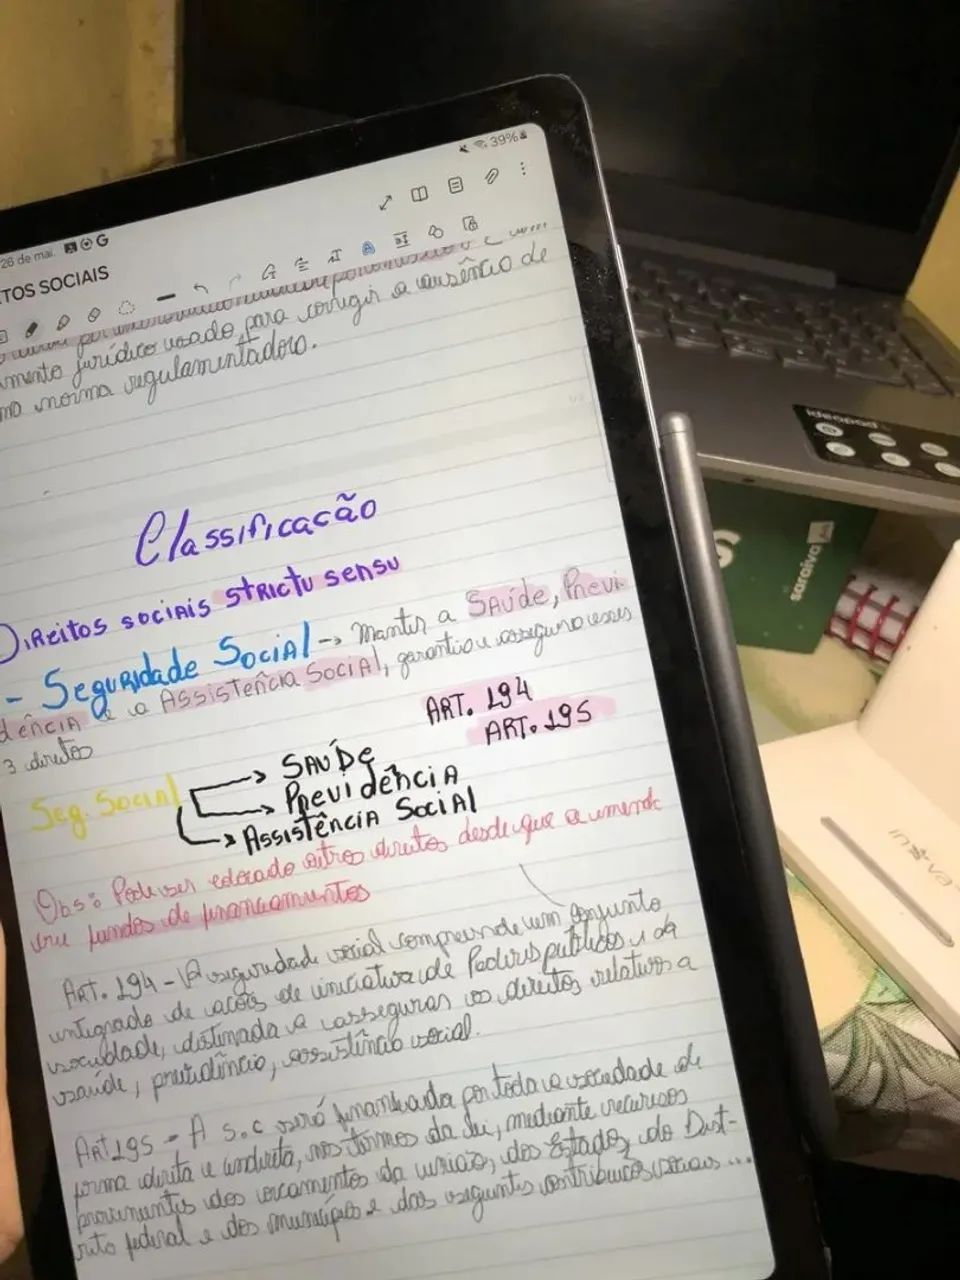 39%
26 de mai. G
TOS SOCIAIS
amento jurídico usado, para corrigir a ausência de
norma regulamentadora.
Classificacão
Direitos sociais strictu sensu
- Seguridade Social → Manter a Saúde, Previ
dência e a Assistência Social, garantia e assegura esses
3 direitos
ART. 194
ART. 195
Seg. Social
→ SAÚDE
→ Previdência
→ Assistência Social
Obs: Pode ser outros direitos desde que a emenda
crie fundos de financiamentos
ART. 194 - A seguridade social compreende um conjunto
integrado de ações de iniciativa de Poderes públicos e da
sociedade, destinada a assegurar os direitos relativos a
saúde, previdência, assistência social.
Art 195 - A s.c será financiada por toda a sociedade de
forma direta e indireta, nos termos da lei, mediante recursos
provenientes dos orcamentos da união, dos Estados, do Dist-
rito federal e dos municípios e das seguintes contribuicos sociais ...
ideapad
saraiva
S